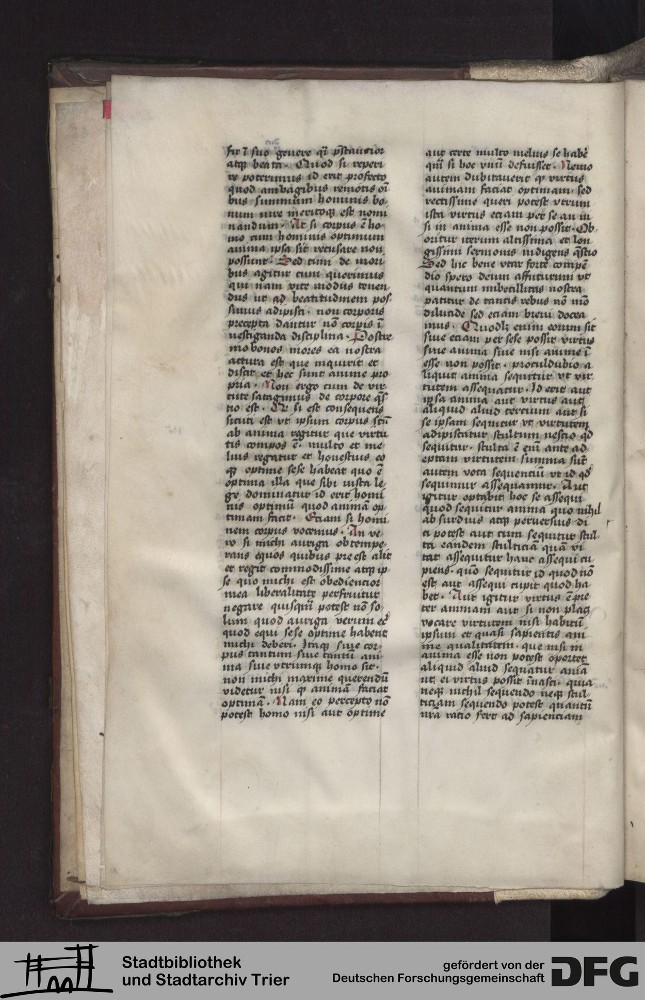 fit ī suo genere q̄ p̄stantior
atqꝫ beata · Quod si reperi
re poterimus id erit profecto
quod ambagibus remotis oī
bus summum hominis bo
num iure meritoqꝫ est nomi
nandum · At si corpus ē ho
mo tum hominis optimum
anima ipsa sit recusare non
possunt · Sed cum de mori
bus agitur cum querimus
qui nam vite modus tenen
dus ut ad beatitudinem pos
simus adipisci · non corporis
precepta dantur nō corpis ī
uestiganda disciplina · Postre
mo bonos mores ea nostra
actura est que inquirit et
discit et hec sunt anime pro
pria · Non ergo cum de vir
tute satagimus de corpore q̄s
tio est · Et si est consequens
sicuti est vt ipsum corpus cū
ab anima regitur que virtu
tis compos ē · multo et me
lius regatur et honestius eo
qꝫ optime sese habeat quo ē
optima illa que sibi iusta le
ge dominatur id erit homi
nis optimū quod animā op
timam facit · Etiam si homi
nem corpus vocemus · An ve
ro si michi auriga obtempe
rans equos quibus pre est alit
et regit commodissime atqꝫ ip
se quo michi est obediencior
mea liberalitate perfruitur
negare quisquā potest nō so
lum quod auriga verum eē
quod equi sese optime habent
michi deberi · Itaqꝫ siue cor
pus tantum siue tantū ani
ma siue vtrumqꝫ homo sit ·
non michi maxime querendū
videtur nisi qꝫ animā faciat
optimā · Nam eo percepto nō
potest homo nisi aut optime
aut certe multo melius se habē
quā si hoc vnū defuisset · Nemo
autem dubitauerit qꝫ virtus
animam faciat optimam sed
rectissime queri potest vtrum
ista virtus eciam per se an ni
si in anima esse non possit · Ob
oritur iterum altissima et lon
gissimi sermonis indigens q̄stio
Sed hic bene vtar forte compē
dio spero deum affuturum vt
quantum imbecillitas nostra
patitur de tantis rebus nō mō
dilucide sed eciam breui docea
mus · Quodlꝫ enim eorum sit
siue eciam per sese possit virtus
siue anima siue nisi anime ī
esse non possit · proculdubio a
liquit anima sequitur vt vir
tutem assequatur · Id erit aut
ipsa anima aut virtus aut
aliquid aliud tercium aut si
se ipsam sequitur vt virtutem
adipiscatur stultum nescio qd
sequitur · stulta ē enī ante ad
eptam virtutem summa sūt
autem vota sequentiū vt id qd
sequimur assequamur · Aut
igitur optabit hoc se assequi
quod sequitur anima quo nihil
absurdius atqꝫ peruersius di
ci potest aut cum sequitur stul
ta eandem stulticia quā vi
tat assequitur hanc assequi cu
piens · quō sequitur id quod nō
est aut assequi cupit quod ha
bet · Aut igitur virtus ē pre
ter animam aut si non placꝫ
vocare virtutem nisi habitū
ipsum et quasi sapientis ani
me qualitatem · que nisi in
anima esse non potest oportet
aliquid aliud sequatur aniā
ut ei virtus possit īnasci · quia
neqꝫ nichil sequendo neqꝫ stul
ticiam sequendo potest quantū
mea ratio fert ad sapienciam
Stadtbibliothek
und Stadtarchiv Trier
gefördert von der
Deutschen Forschungsgemeinschaft
DFG